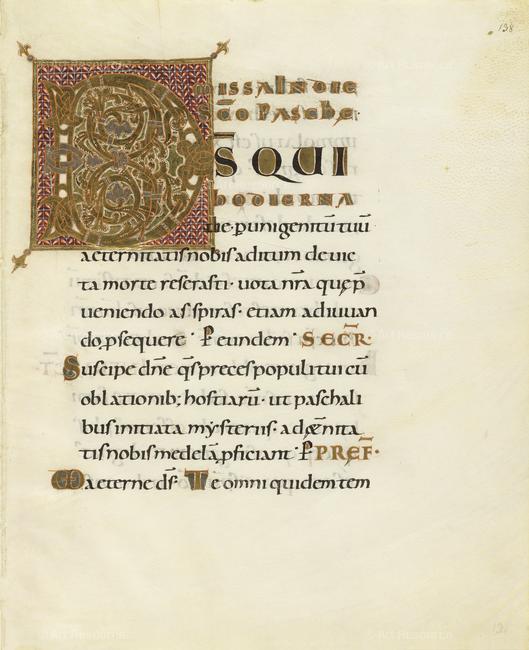 138
missaIndie
sc̄o Paschę·
DS̄ QUI
hodIERNA
die p̲ unigenitū tuū
aeternitatis nobis aditum devic
ta morte reserasti· vota nr̄a quę p̄
veniendo asspiras· etiam adiuuan
do p̲sequere· P̲ eundem· SECR̄·
Suscipe dn̄e qs̄ preces populi tui cū
oblationib; hostiarū· ut paschali
bus initiata mẏsteriis· ad ęterni̅ta
tis nobis medelā p̲ficiant· P̲ PREF̄·
UD aeterne ds̄· Te omni quidem tem